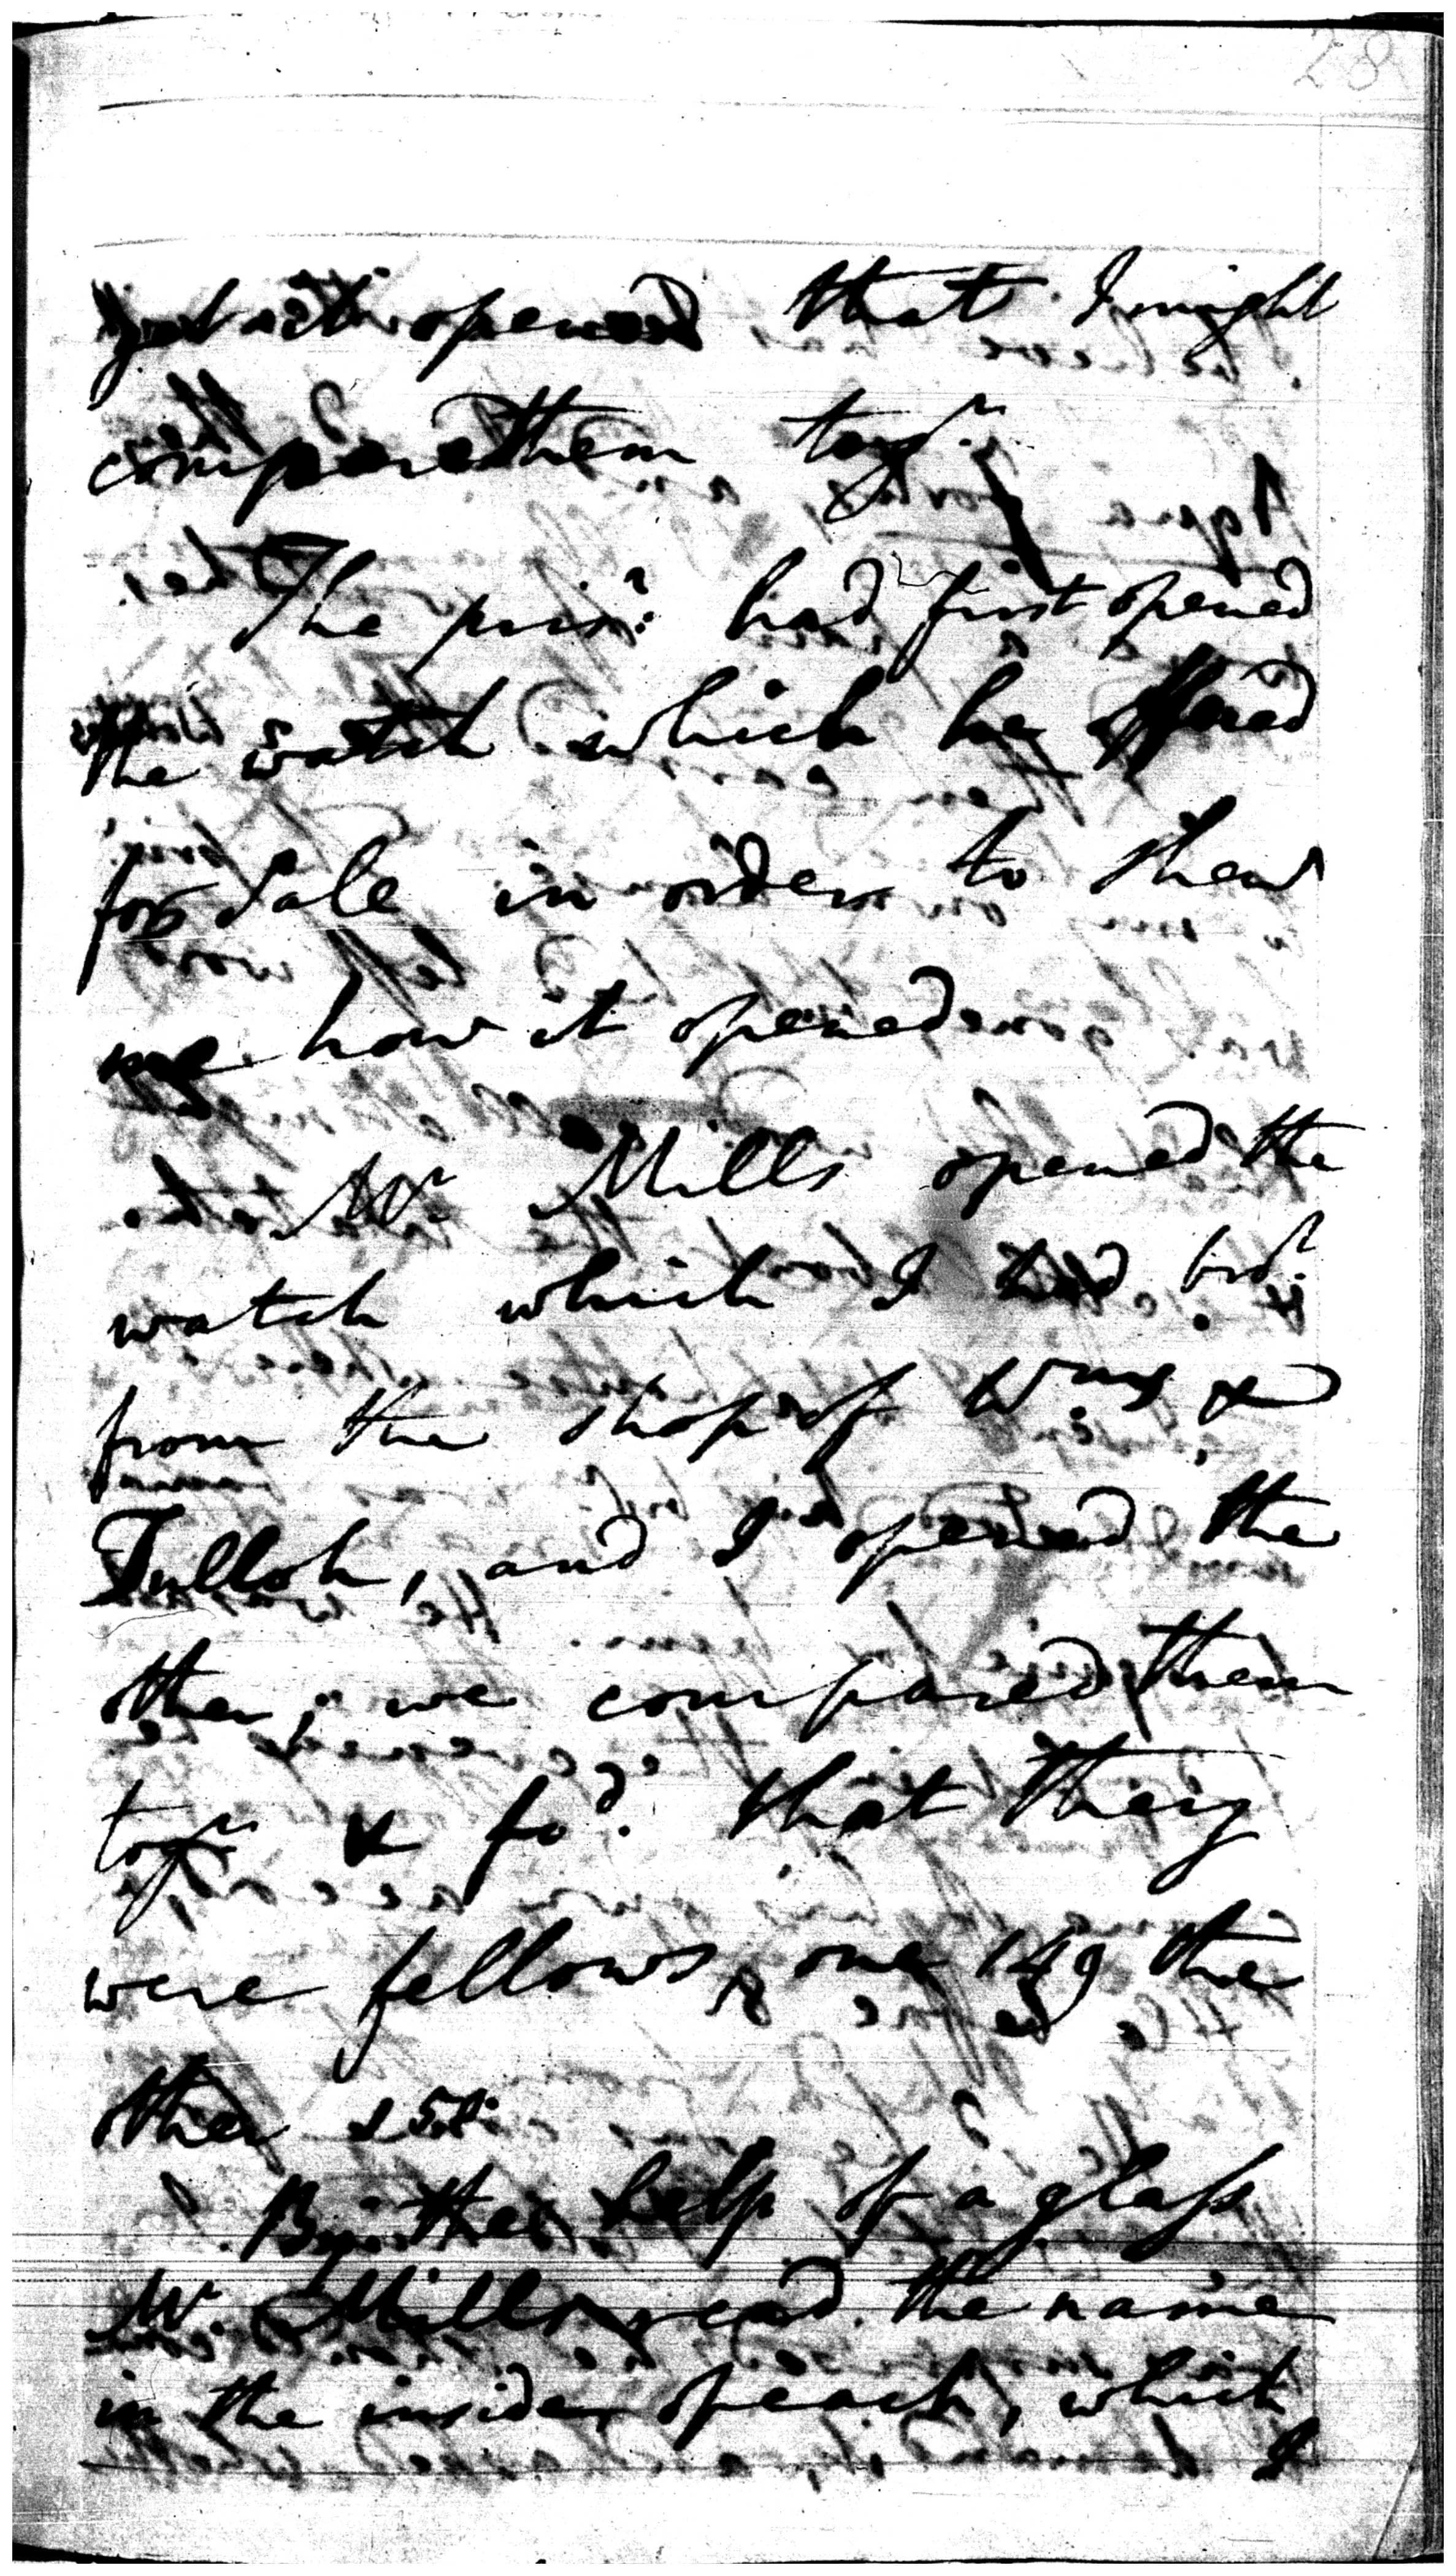 28
get it opened that I might
compare them togr.
The prisr. had first opened
the watch which he offered
for Sale in order to shew
me how it opened
Mr Mills opened the
watch which I had bot.
from the shop of Wms &
Tulloh, and I opened the
other; we compared them
togr & fod. that they
were fellows, one 149 the
other
By the help of a glass
Mr. Mills read the name
in the inside of each, which
I